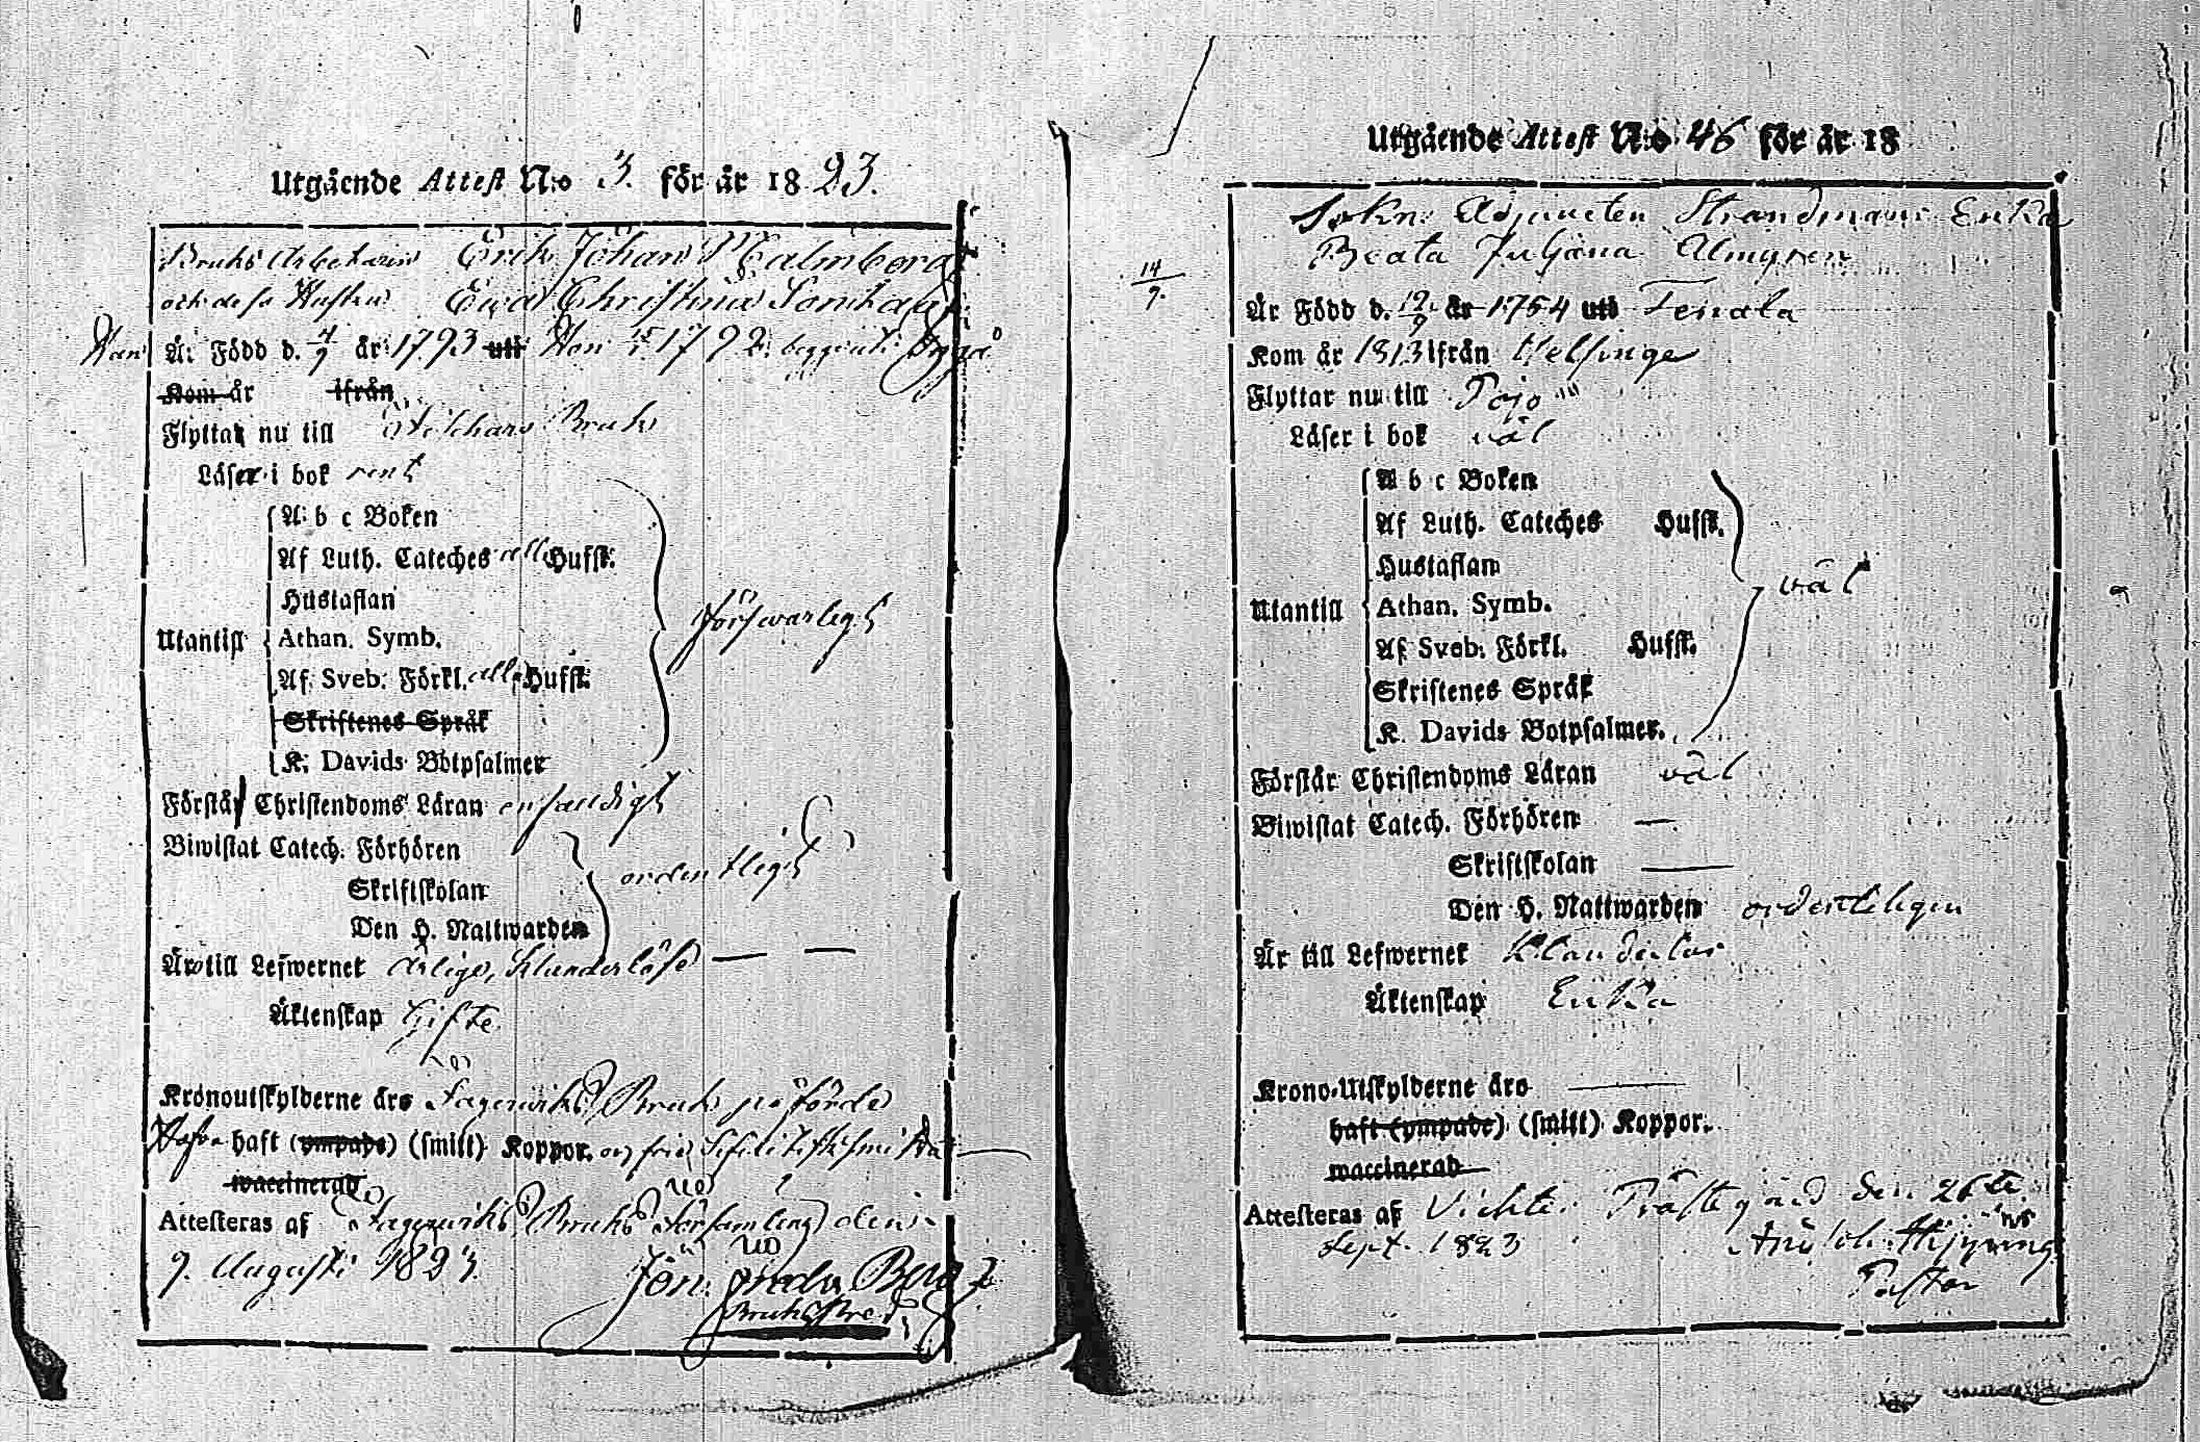 Utgående Attest N:o 3. för år 1823.
Bruks Arbetaren Erik Johan Malmberg
och dess Hustru Ewa Christina
Han Är Född d. 4/9 år 1793 uti Hon 1792 begge uti
Kom år ifrån
Flyttar nu till Bruk
Läser i bok rent
A b c Boken
Af Luth. Cateches alla Hufst.
Hustaflan
Utantill
Athan. Symb.
Af Sveb. Förkl. alla Hufst.
Skriftenes Språk
K. Davids Botpsalmer
förswarligt
Förstår Christendoms Läran enfaldigt
Biwistat Catech. Förhören
Skriftskolan
Den H. Nattwarden
ordentligt
Äro till Lefwernet ärlige, klanderlöse
Äktenskap Gifte
Kronoutskylderne äro Fagerwiks Bruk påförde
Hafva haft (ympade) (smitt) Koppor. och fria
waccinerad
Attesteras af Fagerwiks Bruks Församling den
9. Augusti 1823.
Berg
Utgående Attest N:o 46 för år 18
Sokn. Adjuncten Strandmans Enka
Beata Juliana Almgren
14/9.
Är Född d. 12/9 år 1754 uti Tenala
Kom år 1813 ifrån Helsinge
Flyttar nu till Pojo
Läser i bok wäl
A b c Boken
Af Luth. Cateches Hufst.
Hustaflan
Utantill
Athan. Symb.
Af Sveb. Förkl. Hufst.
Skriftenes Språk
K. Davids Botpsalmer.
wäl
Förstår Christendoms Läran wäl
Biwistat Catech. Förhören —
Skriftskolan —
Den H. Nattwarden ordenteligen
Är till Lefwernet klanderlös
Äktenskap Enka
Krono-Utskylderne äro —
haft (ympade) (smitt) Koppor.
waccinerad
Attesteras af Vichtis Prästegård den 26te
Sept. 1823
Pastor